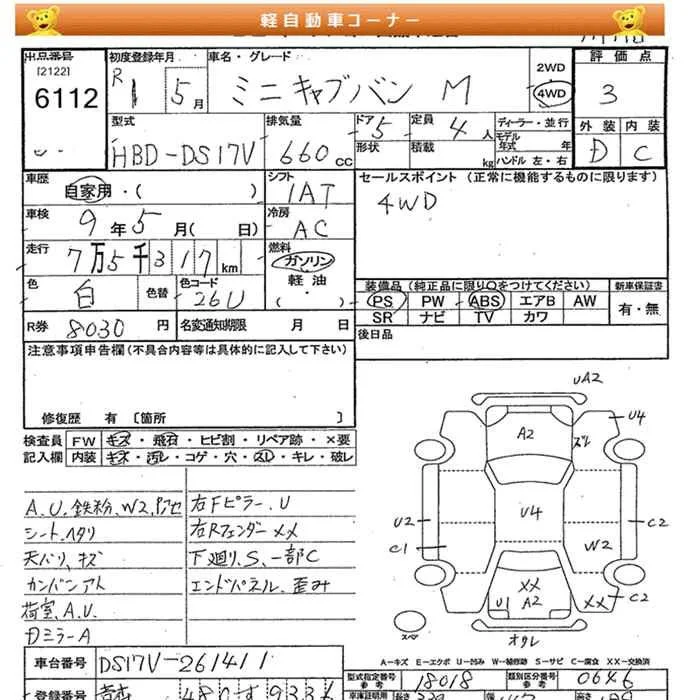 軽自動車コーナー
出品番号
[2122]
6112
初度登録年月
R 1 5月
車名・グレード
ミニキャブバン M
2WD
4WD
評価点
3
外装 内装
D C
型式
HBD-DS17V
排気量
660cc
ドア 5
形状
定員 4人
積載 kg
ディーラー・並行
モデル年式 年
ハンドル 左・右
車歴
自家用・( )
シフト
IAT
セールスポイント (正常に機能するものに限ります)
4WD
車検
9年5月( 日)
冷房
AC
走行
7万5千317km
燃料
ガソリン
軽油
( )
色
白
色替
色コード
26U
装備品 (純正品に限り○をつけてください)
新車保証書
PS PW ABS エアB AW
有・無
SR ナビ TV カワ
R券 8030円
名変通知期限 月 日
後日品
注意事項申告欄(不具合内容等は具体的に記入して下さい)
修復歴 有 〔箇所 〕
検査員 FW キズ・飛石・ヒビ割・リペア跡・×要
記入欄 内装 キズ・汚レ・コゲ・穴・スレ・キレ・破レ
A.U.鉄粉、W2、
右Fピラー.U
シート.ヘタリ
右Rフェンダー××
天バリ、キズ
下廻り、S、一部C
カンバンアト
エンドパネル.歪み
荷室、A.U.
ミラーA
UA2
U4
A2
ズレ
U4
U2
C1
C2
W2
XX
U1 A2
XX
C2
スペア
オクレ
A-キズ E-エクボ U-凹み W-補修跡 S-サビ C-腐食 XX-交換済
車台番号
DS17V-261411
型式指定番号 参考
18018
類別区分番号 参考
0646
登録番号
車庫証明用
長さ